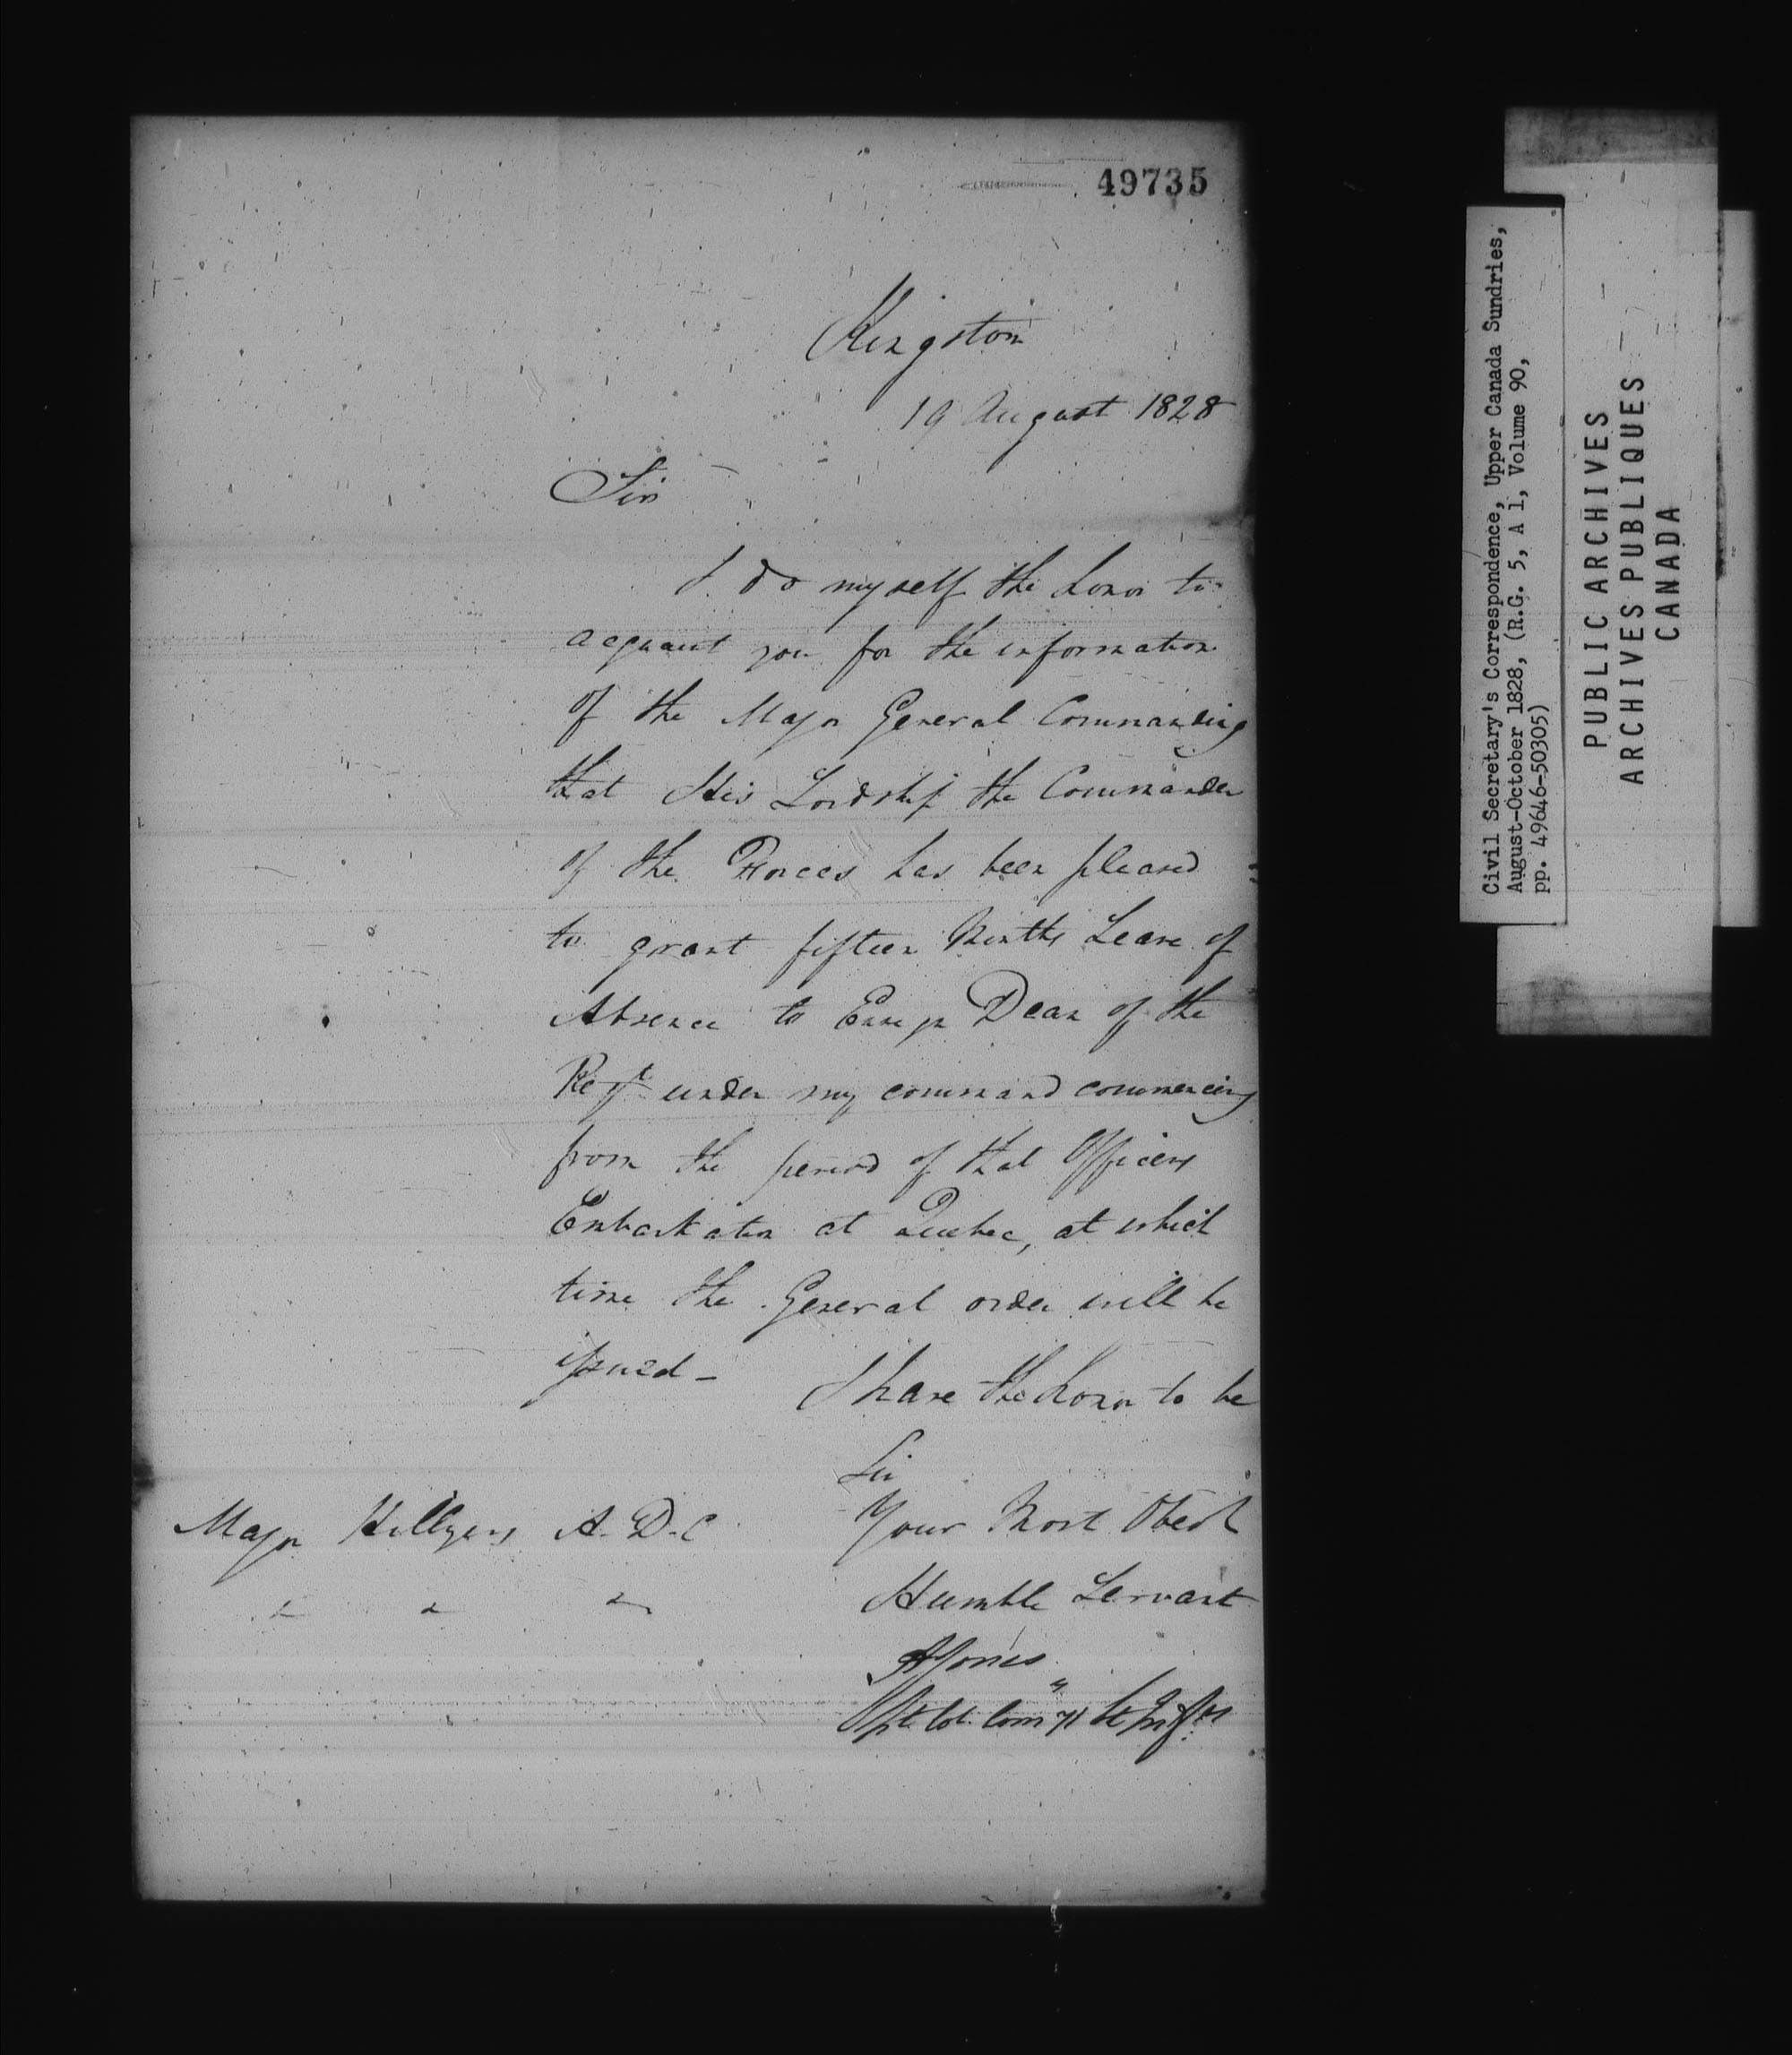 49735
Kingston
19 August 1828
Sir
I do myself the honor to
acquaint you for the information
of the Major General Commanding
that His Lordship the Commander
of the Forces has been pleased
to grant fifteen Months Leave of
Absence to Ensign Dean of the
Regt under my command commencing
from the period of that Officers
Embarkation at Quebec, at which
time the General order will be
issued -
I have the honor to be
Sir
Your Most Obedt
Humble Servant
A Jones
Lt Col. Com 71
Major Hillyers A.D.C
Civil Secretary's Correspondence, Upper Canada Sundries,
August-October 1828, (R.G. 5, A 1, Volume 90,
pp. 49646-50305)
PUBLIC ARCHIVES
ARCHIVES PUBLIQUES
CANADA